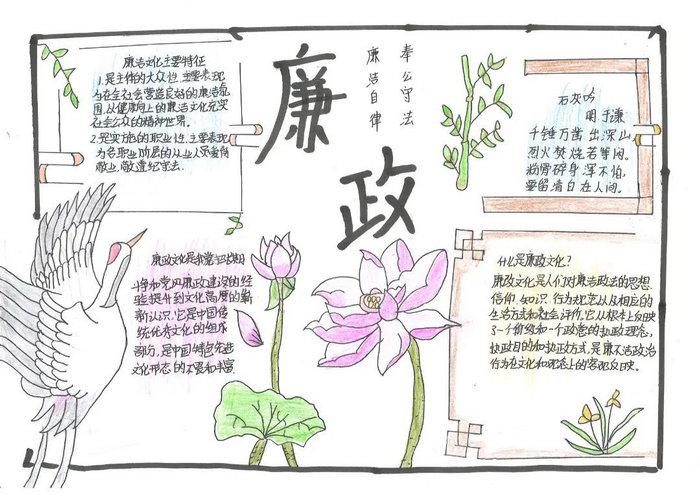 廉洁文化主要特征
1.是主体的大众性.主要表现
为在全社会营造良好的廉洁氛
围,以健康向上的廉洁文化充实
社会公众的精神世界。
2.是实施的职业性.主要表现
为各职业阶层的从业人员看得
敬业.敬遵纪守法.
廉
政
奉公守法
廉洁自律
石灰吟
明于谦
千锤万凿出深山,
烈火焚烧若等闲。
粉骨碎身浑不怕,
要留清白在人间。
廉政文化是
和党风廉政建设的经
验提升到文化高度的崭
新认识.它是中国传
统优秀文化的组成
部分,是中国特色先进
文化形态的
什么是廉政文化?
廉政文化是人们对廉洁政洁的思想.
信仰.知识.行为规范以及相应的
生活方式和社会评价,它从根本上反映
了一个阶级和一个政党的执政理念,
执政目的和执政方式,是廉不洁政治
行为在文化和观念上的客观反映。